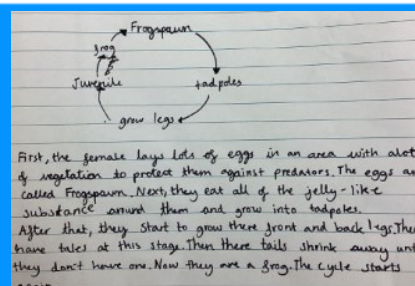 Frogspawn
frog
Juvenile
tadpoles
grow legs
First, the female lays lots of eggs in an area with alot
of vegetation to protect them against predators. The eggs are
called Frogspawn. Next, they eat all of the jelly-like
substance around them and grow into tadpoles.
After that, they start to grow there front and back legs. They
have tales at this stage. Then there tails shrink away until
they don't have one. Now they are a frog. The cycle starts
again